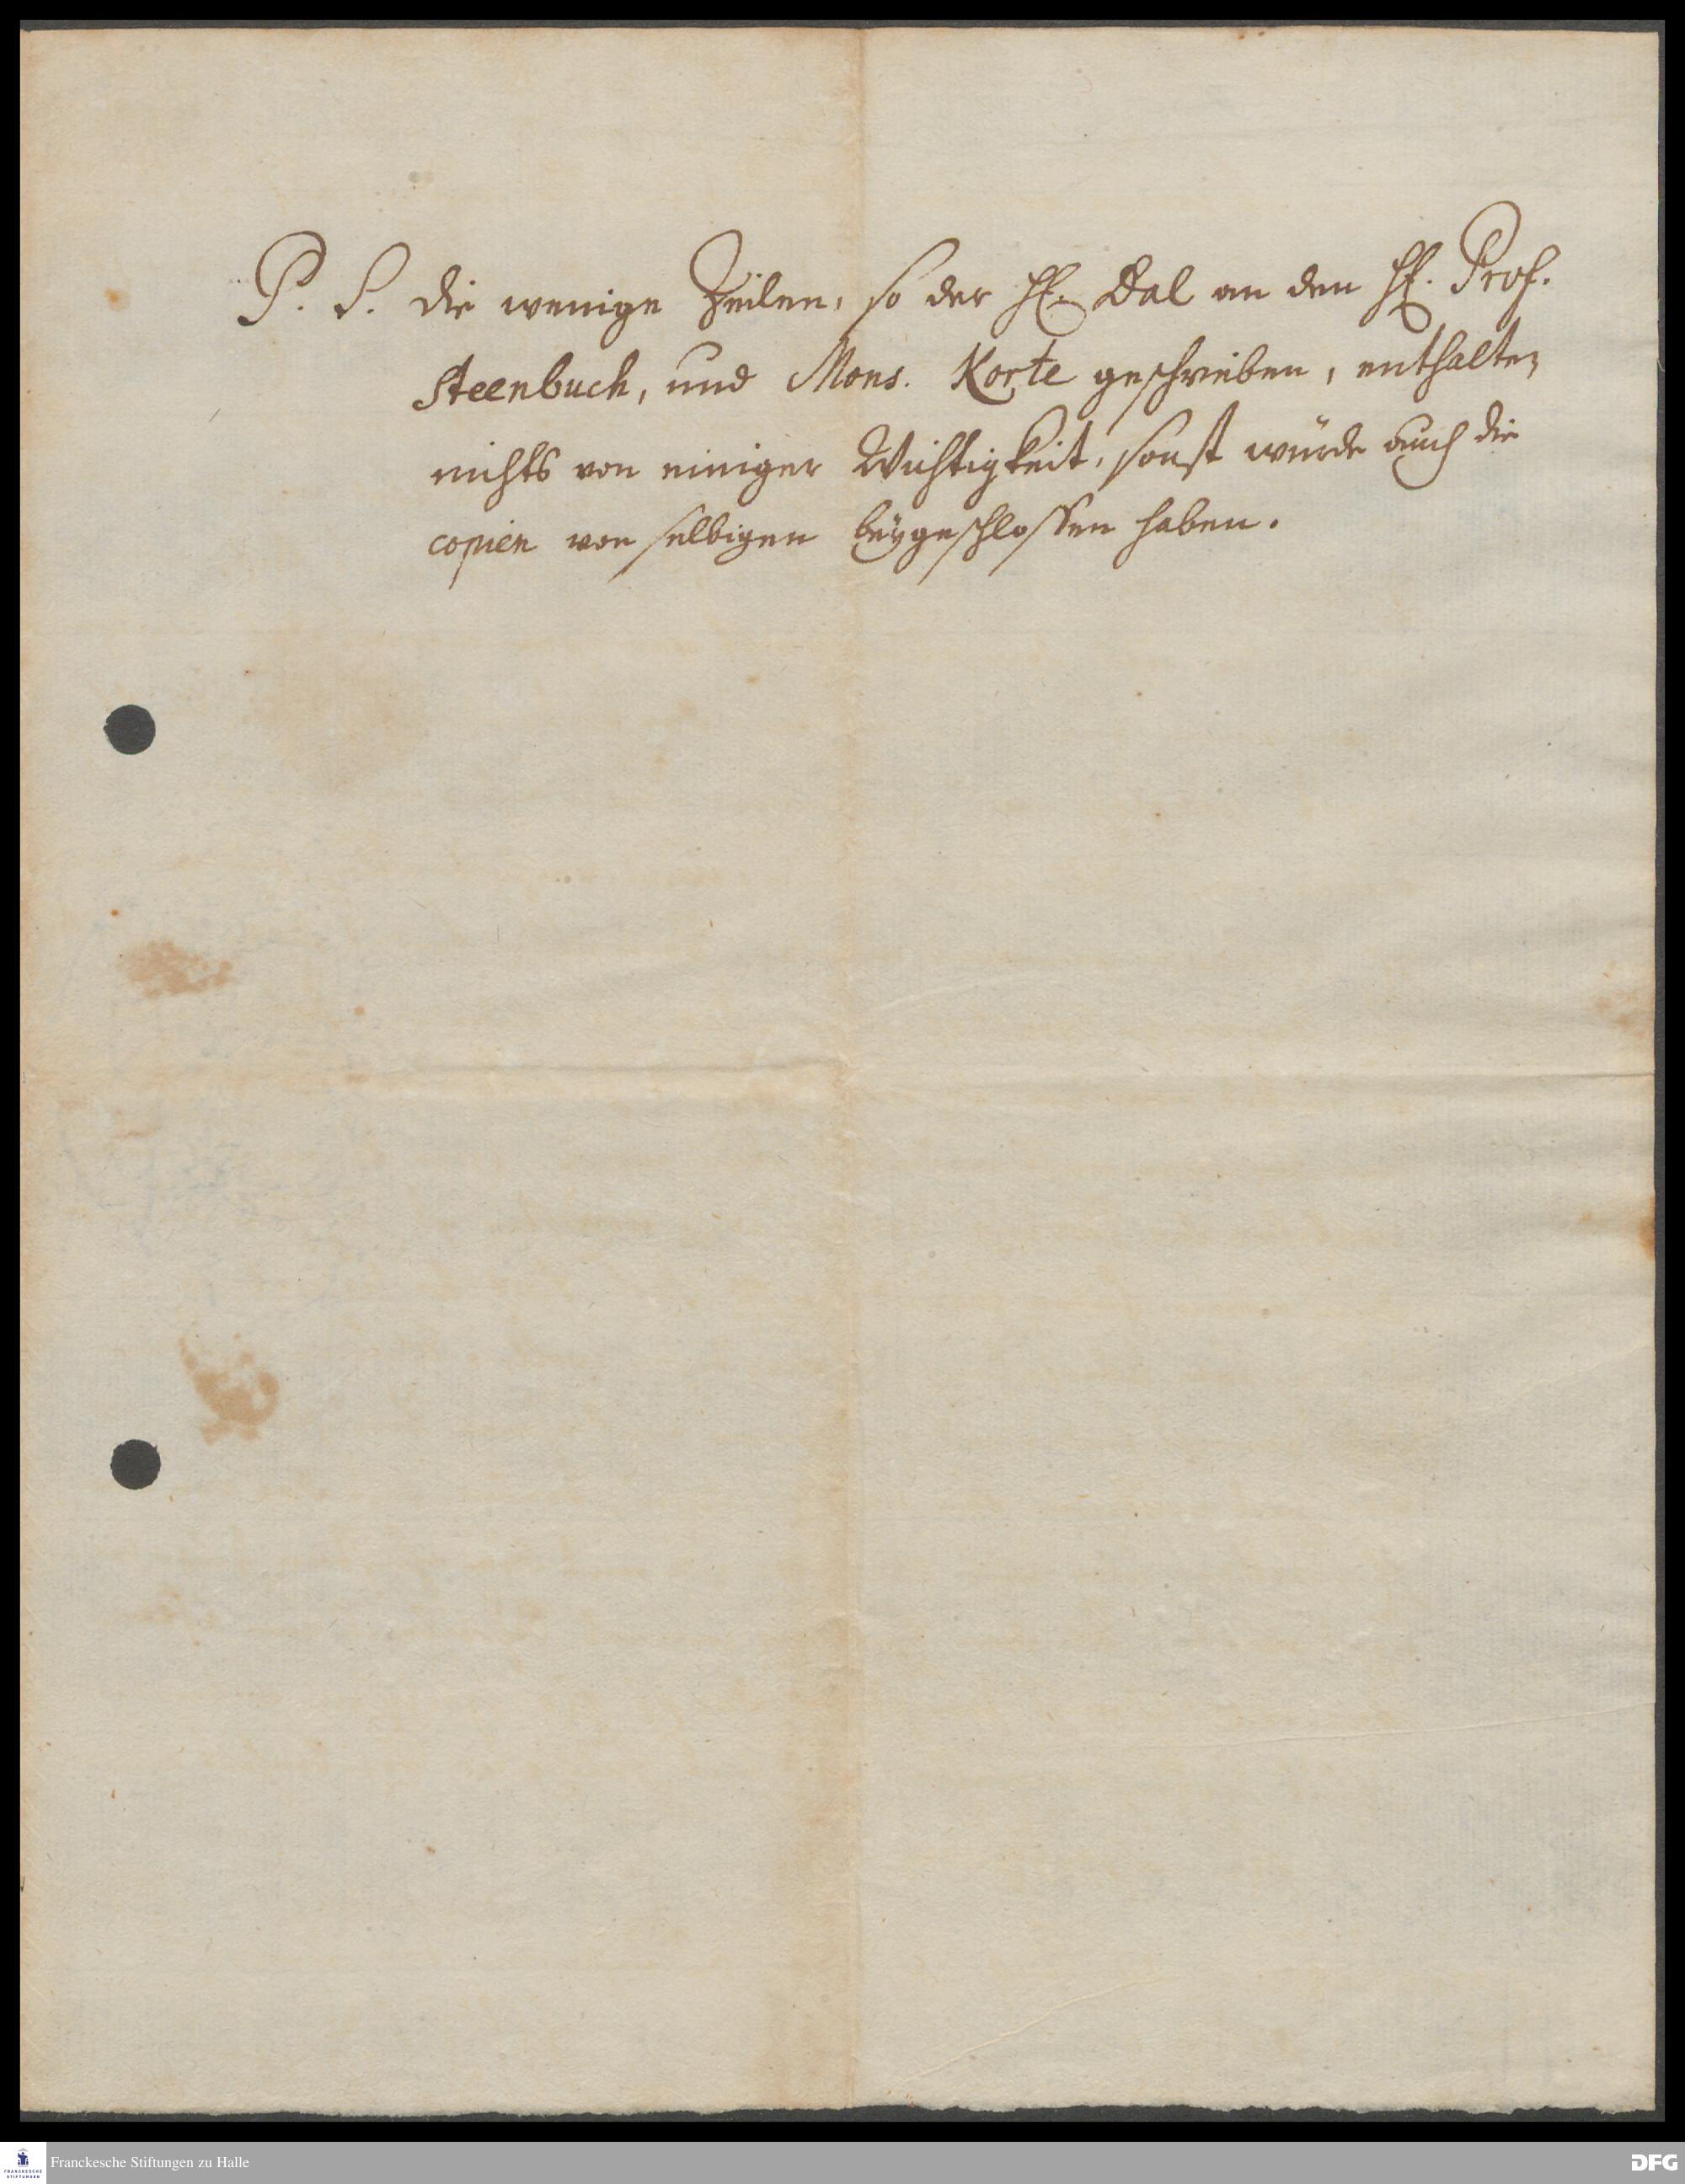 P. S. die wenige Zeilen, so der H. Dal an den H. Prof.
Steenbuch, und Mons. Korte geschrieben, enthalten
nichts von einiger Wichtigkeit, sonst würde auch die
copien von selbigen beygeschlossen haben.
FRANCKESCHE
STIFTUNGEN
Franckesche Stiftungen zu Halle
DFG